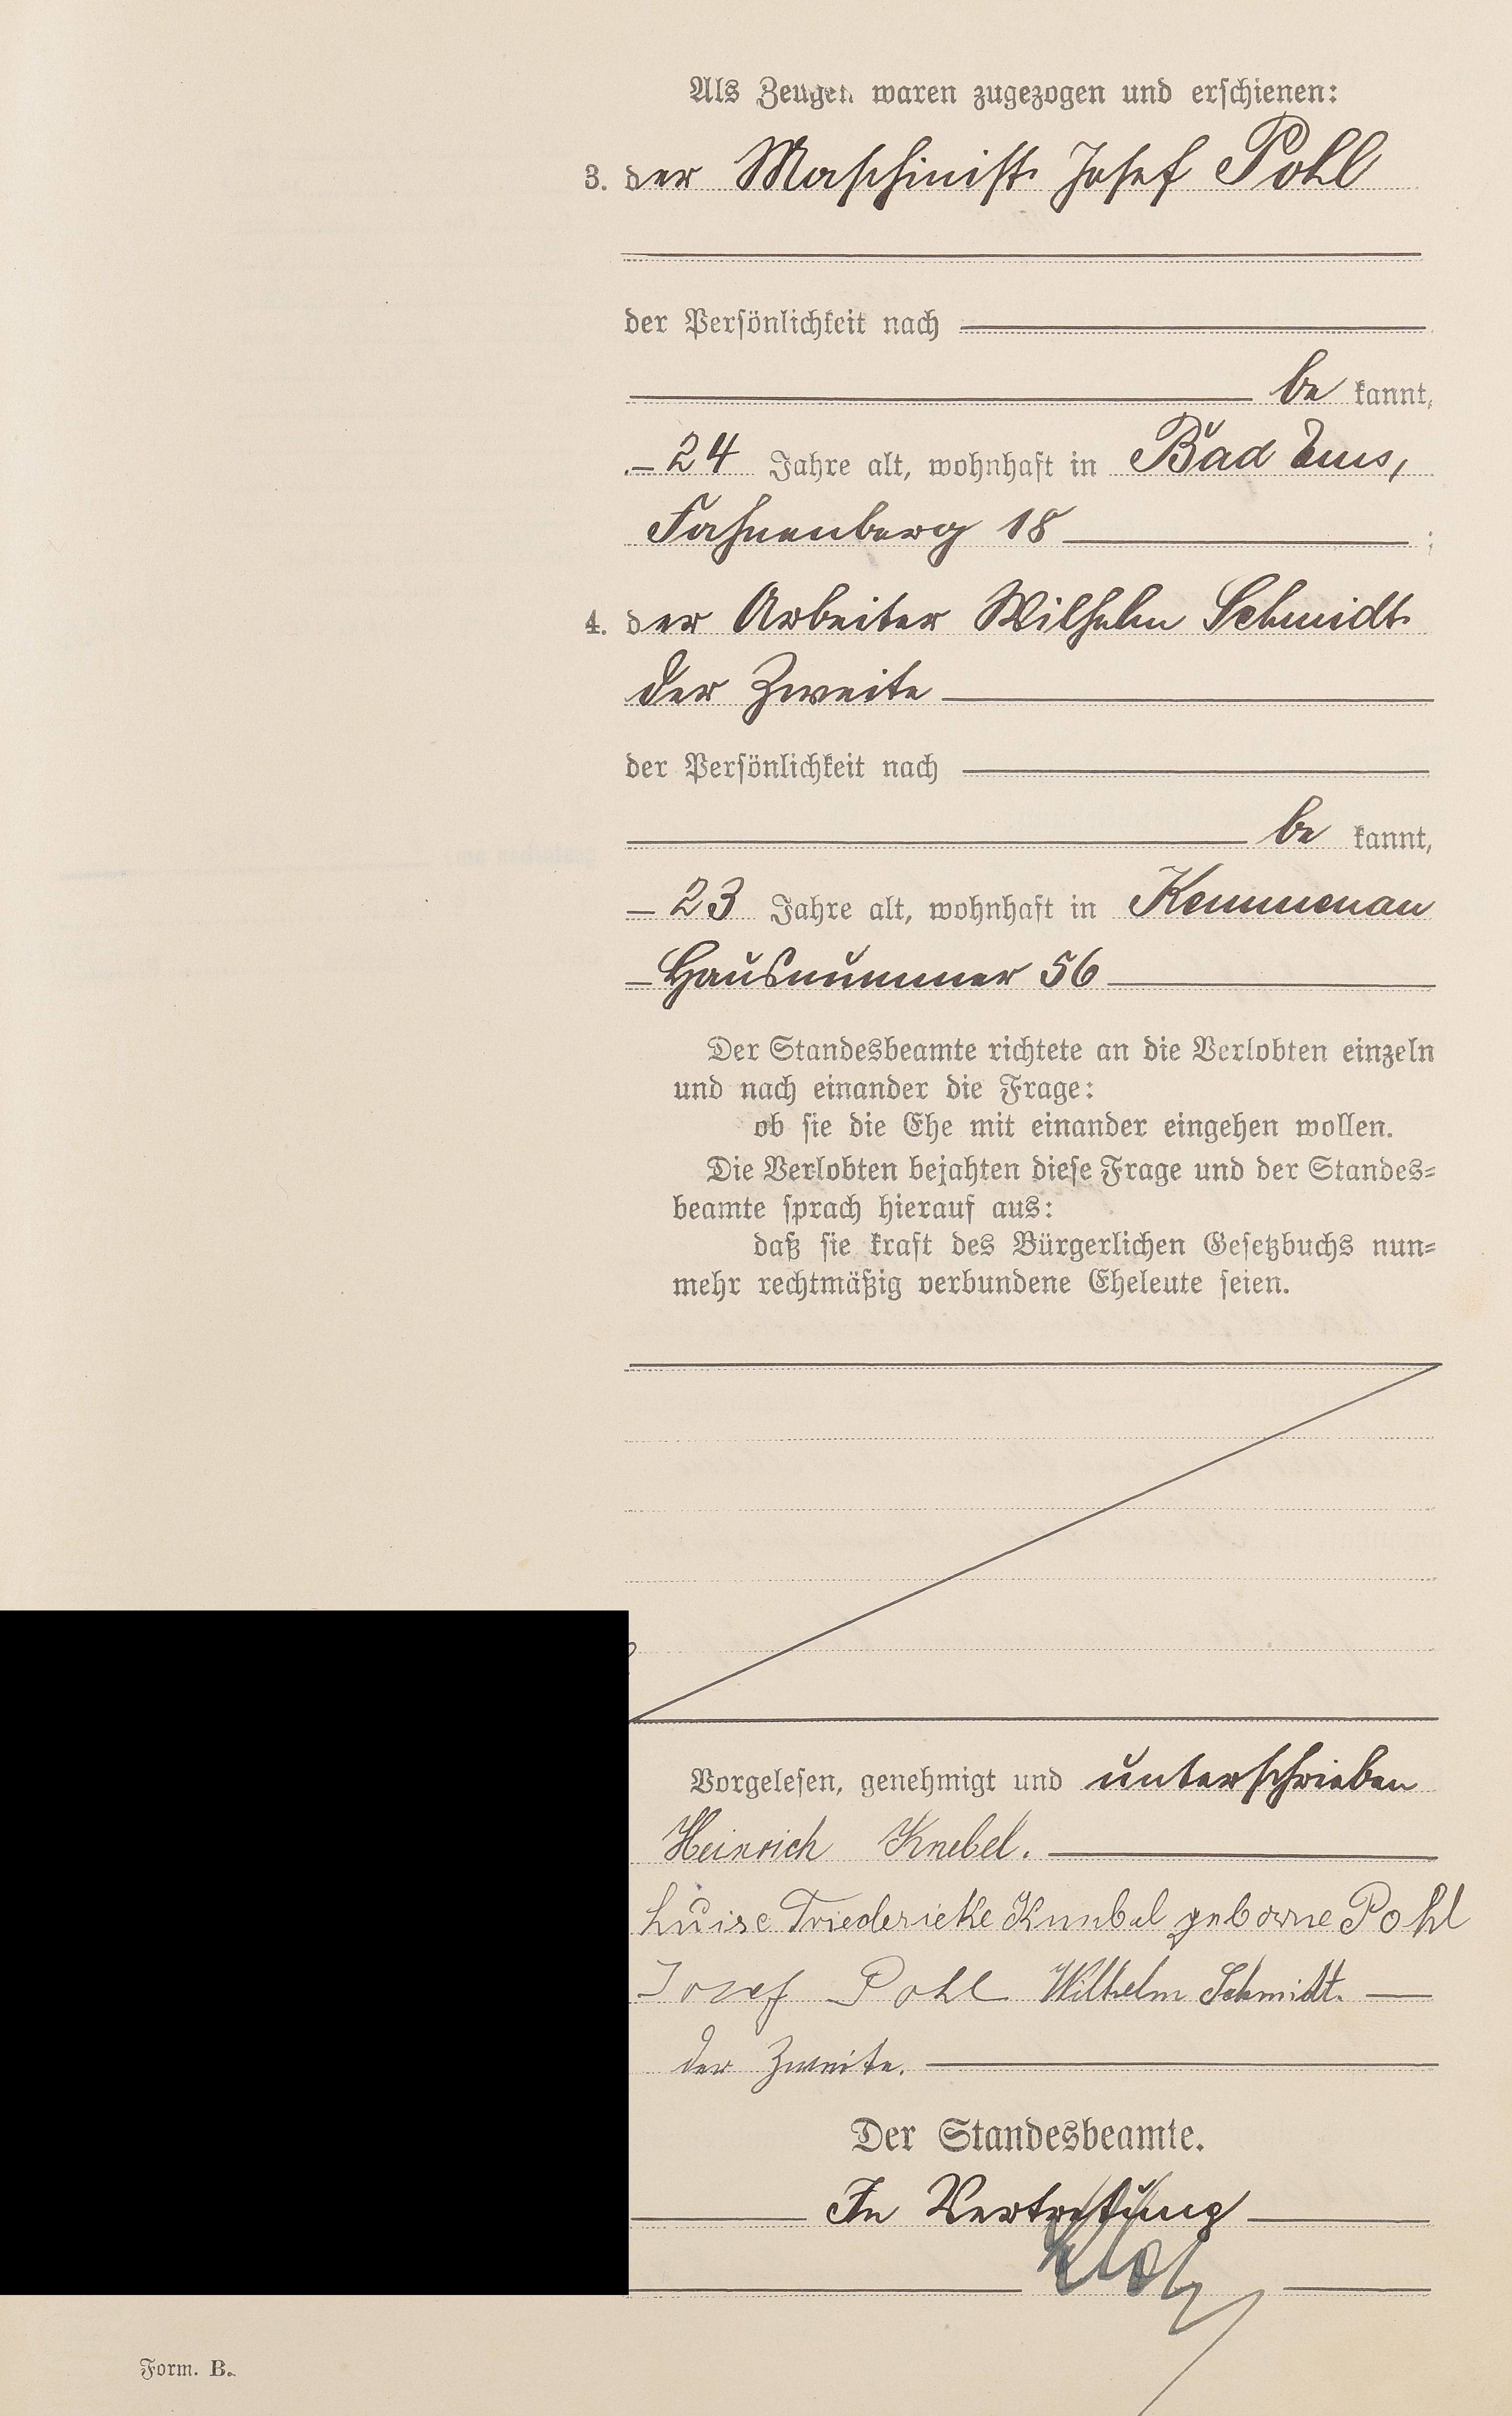 Als Zeugen waren zugezogen und erschienen:
3. der Maschinist Josef Pohl
der Persönlichkeit nach
be kannt,
24 Jahre alt, wohnhaft in Bad Ems,
Fahnenberg 18 ;
4. der Arbeiter Wilhelm Schmidt
der Zweite
der Persönlichkeit nach
be kannt,
23 Jahre alt, wohnhaft in Kemmenau
Hausnummer 56
Der Standesbeamte richtete an die Verlobten einzeln
und nach einander die Frage:
ob sie die Ehe mit einander eingehen wollen.
Die Verlobten bejahten diese Frage und der Standes=
beamte sprach hierauf aus:
daß sie kraft des Bürgerlichen Gesetzbuchs nun=
mehr rechtmäßig verbundene Eheleute seien.
Vorgelesen, genehmigt und unterschrieben
Heinrich Knebel.
Luise Friedericke Knebel geborne Pohl
Josef Pohl Wilhelm Schmidt.
der Zweite.
Der Standesbeamte.
In Vertretung
Form. B.